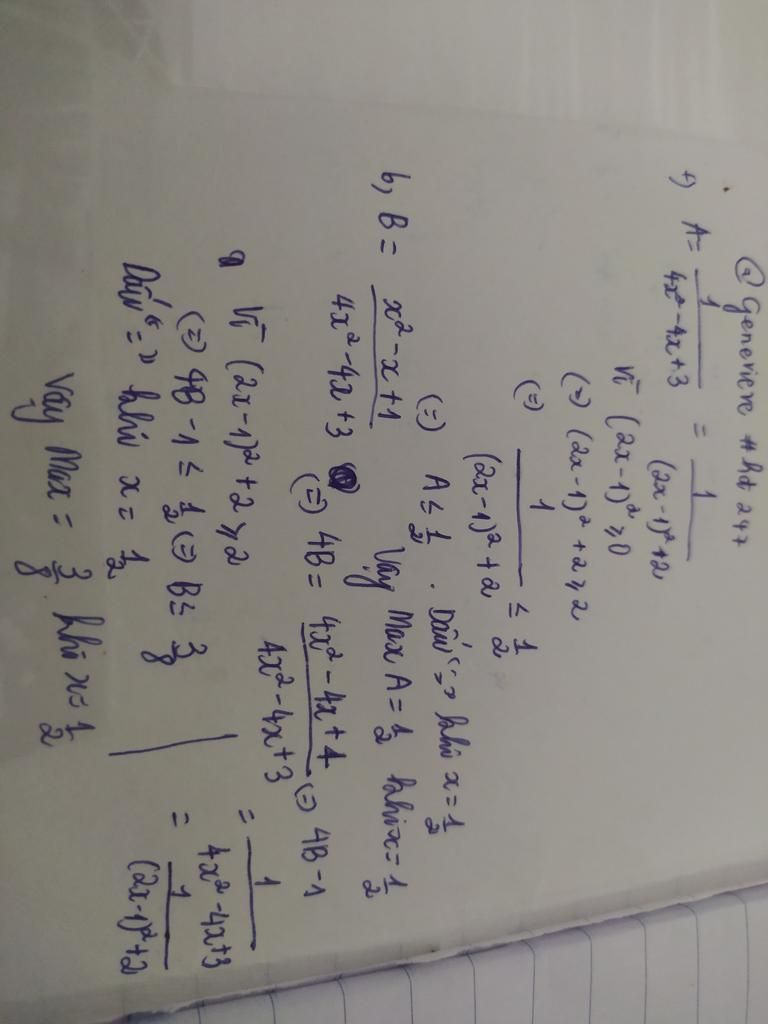 @ Genevieve #hd 247
+) A = 1/(4x² - 4x + 3) = 1/((2x-1)² + 2)
Vì (2x-1)² ≥ 0
(=) (2x-1)² + 2 ≥ 2
(=) 1/((2x-1)² + 2) ≤ 1/2
(=) A ≤ 1/2 . Dấu "=" khi x = 1/2
Vậy Max A = 1/2 khi x = 1/2
b, B = (x² - x + 1)/(4x² - 4x + 3)
(=) 4B = (4x² - 4x + 4)/(4x² - 4x + 3) (=) 4B - 1
= 1/(4x² - 4x + 3)
= 1/((2x-1)² + 2)
Vì (2x-1)² + 2 ≥ 2
(=) 4B - 1 ≤ 1/2 (=) B ≤ 3/8
Dấu "=" khi x = 1/2
Vậy Max = 3/8 khi x = 1/2